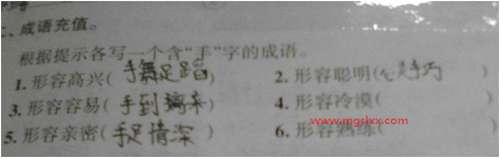 、成语充值。
根据提示各写一个含“手”字的成语。
1.形容高兴(手舞足蹈) 2.形容聪明(心灵手巧
3.形容容易(手到擒来) 4.形容冷漠(
www.mgshxx.com
5.形容亲密(手足情深) 6.形容熟练(